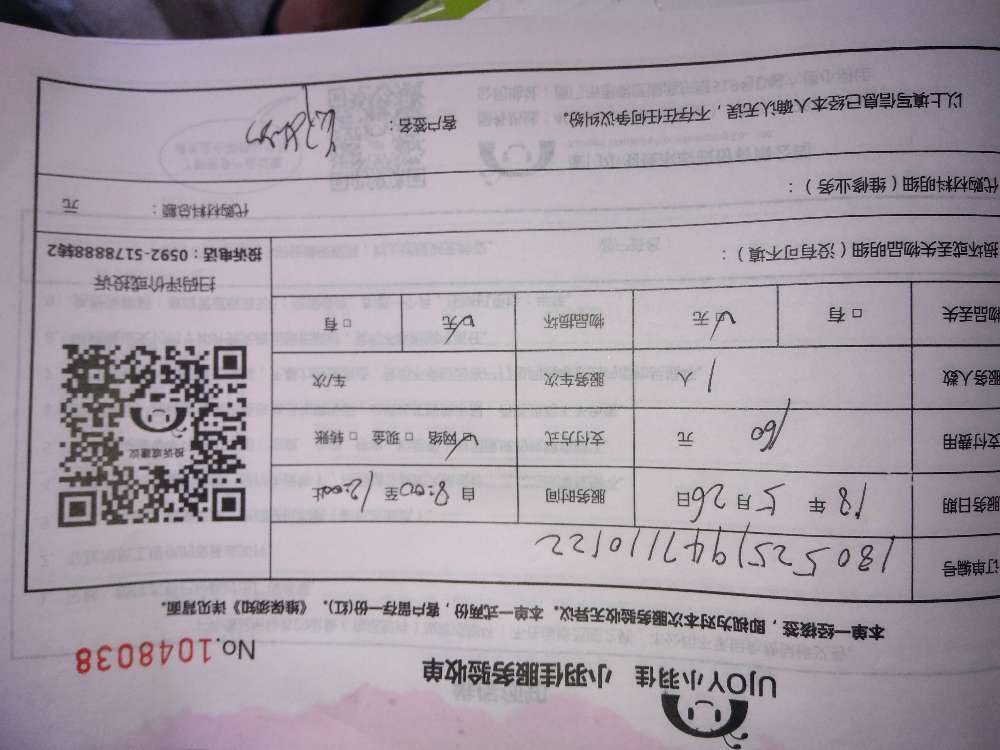 UJOY小羽佳 小羽佳服务验收单
No.1048038
本单一经接签，即视为对本次服务验收无异议。本单一式两份，客户留存一份(红)。《维保须知》详见背面。
订单编号 1805251947110122
服务日期 18年5月26日 服务时间 自8:00至12:00止
支付费用 160 元 支付方式 ☑网络 □现金 □转账
服务人数 1 人 服务车次 车/次
物品丢失 □有 ☑无 物品损坏 ☑无 □有
投诉或建议
扫码评价或投诉
投诉电话：0592-5178888转2
损坏或丢失物品明细（没有可不填）：
代购材料明细（维修业务）：
代购材料总额： 元
以上填写信息已经本人确认无误，不存在任何争议纠纷。 客户签名：